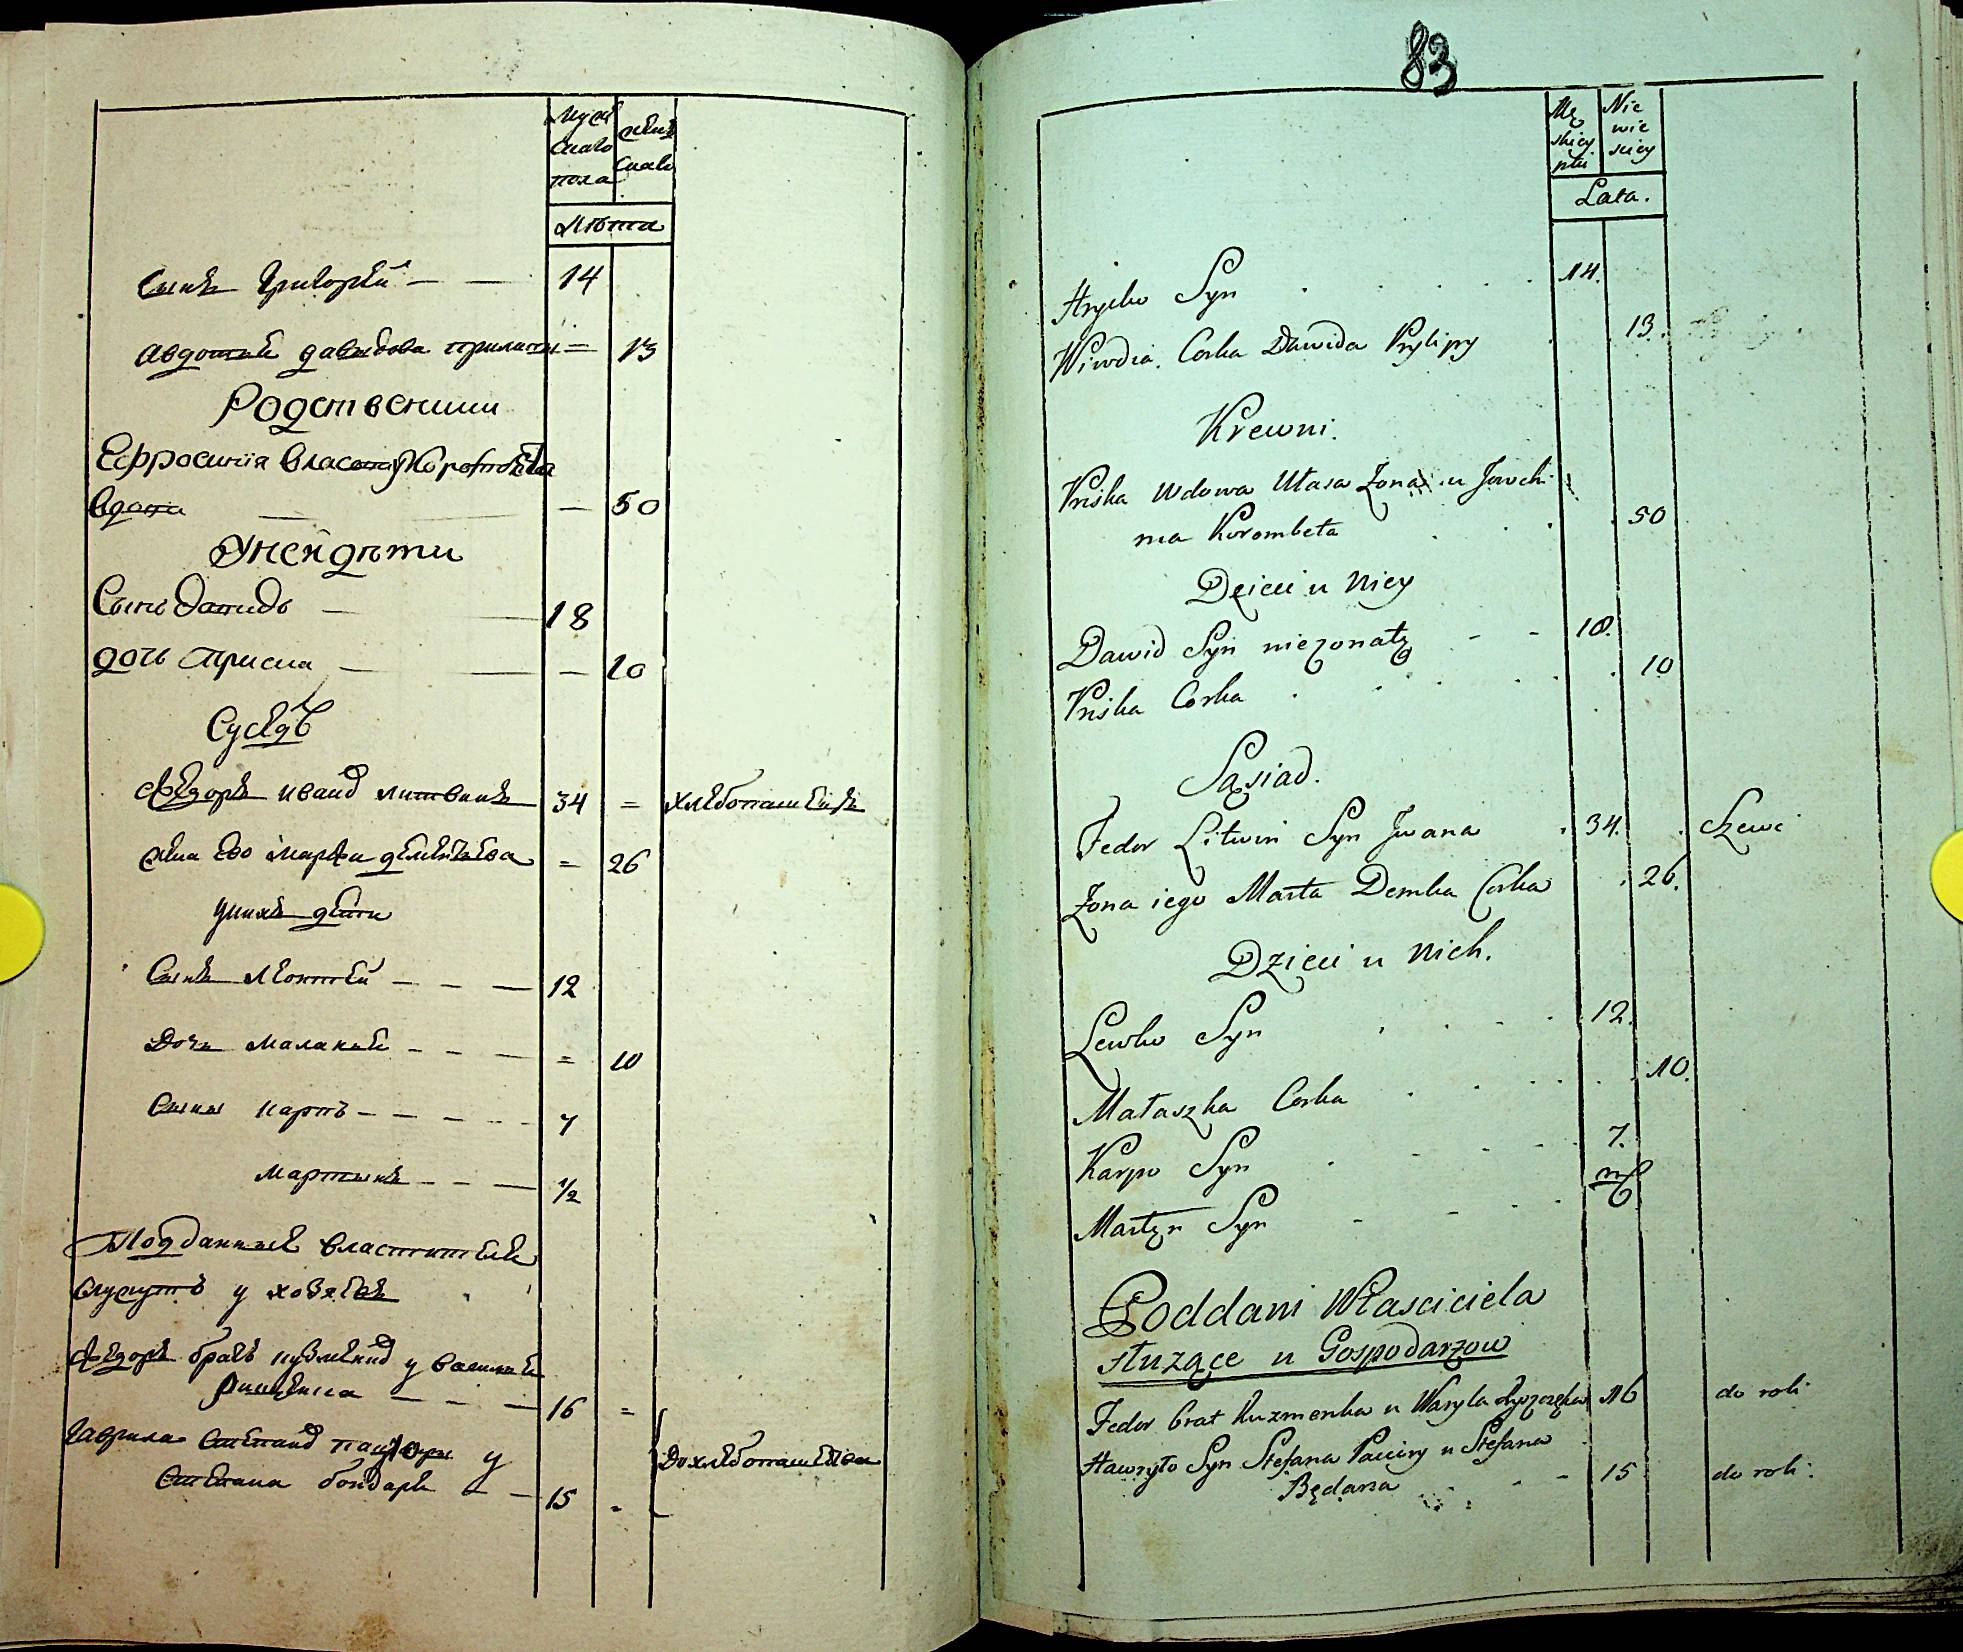 Муж
скаго
пола
женс
скаго
Лѣта
Сынъ Григорей — — 14
Авдотья давыдова прилипы = 13
Родственники
Ефросиния Власа
вдова — — — 50
Унеи дѣти
Сынъ Давидъ — — 18
дочь Приска — — — 10
Сусѣдъ
Ѳедоръ иванов литвинъ 34 = хлѣбопашецъ
жена его марфа демьянова = 26
у нихъ дети
Сынъ Леонтей — — — 12
Дочь маланья — — — = 10
Сыны карпъ — — — 7
мартынъ — — — 1/2
Подданные властителя
служутъ у хозяевъ
Ѳедоръ братъ кузменков у василия
— — — 16 =
гаврила степанов пацюры у
степана бондаря — — 15 - до хлѣбопашества
83
Mę
skiey
płci
Nie
wie
sciey
Lata.
Hryćko Syn . . . . . 14.
Wiwdia. Corka Dawida Prylipy . . 13.
Krewni.
Pryśka Wdowa Własa Zona u Jowchi
ma Korombeta . . . 50
Dzieci u Niey
Dawid Syn niezonaty - - 18.
Pryśka Corka . . . . . 10
Sąsiad.
Fedor Litwin Syn Jwana . 34. . Szewc
Zona iego Marta Demka Corka . 26.
Dzieci u Nich.
Lewko Syn . . . . 12.
Małaszka Corka . . . . 10.
Karpo Syn . - - . 7.
Martyn Syn - - - . ½
Poddani Własciciela
słuzące u Gospodarzow
Fedor brat Kuzmenka u Wasyla 16 do roli
Hawryło Syn Stefana Paciury u Stefana
Będarza . . - - 15 do roli.